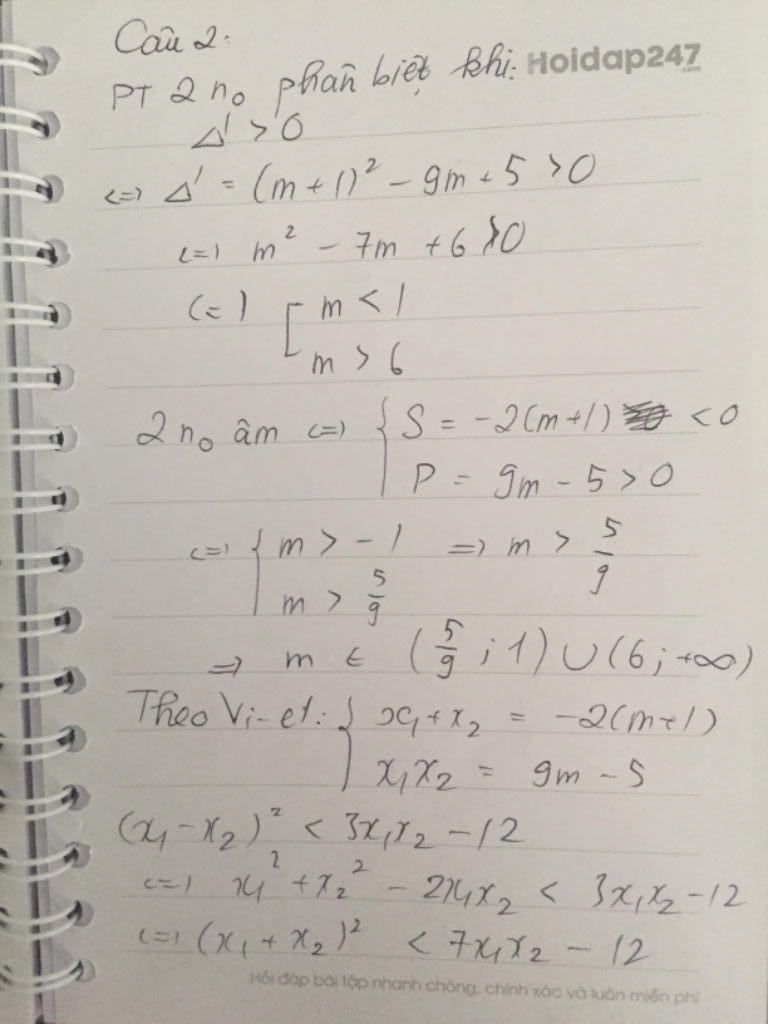 Câu 2:
PT 2 no phân biệt khi: Hoidap247.com
Δ' > 0
<=> Δ' = (m+1)² - 9m + 5 > 0
<=> m² - 7m + 6 > 0
<=> [ m < 1
m > 6
2 no âm <=> { S = -2(m+1) < 0
P = 9m - 5 > 0
<=> { m > -1 => m > 5/9
m > 5/9
=> m ∈ (5/9 ; 1) ∪ (6 ; +∞)
Theo Vi-et: { x₁ + x₂ = -2(m+1)
x₁x₂ = 9m - 5
(x₁ - x₂)² < 3x₁x₂ - 12
<=> x₁² + x₂² - 2x₁x₂ < 3x₁x₂ - 12
<=> (x₁ + x₂)² < 7x₁x₂ - 12
Hỏi đáp bài tập nhanh chóng, chính xác và luôn miễn phí